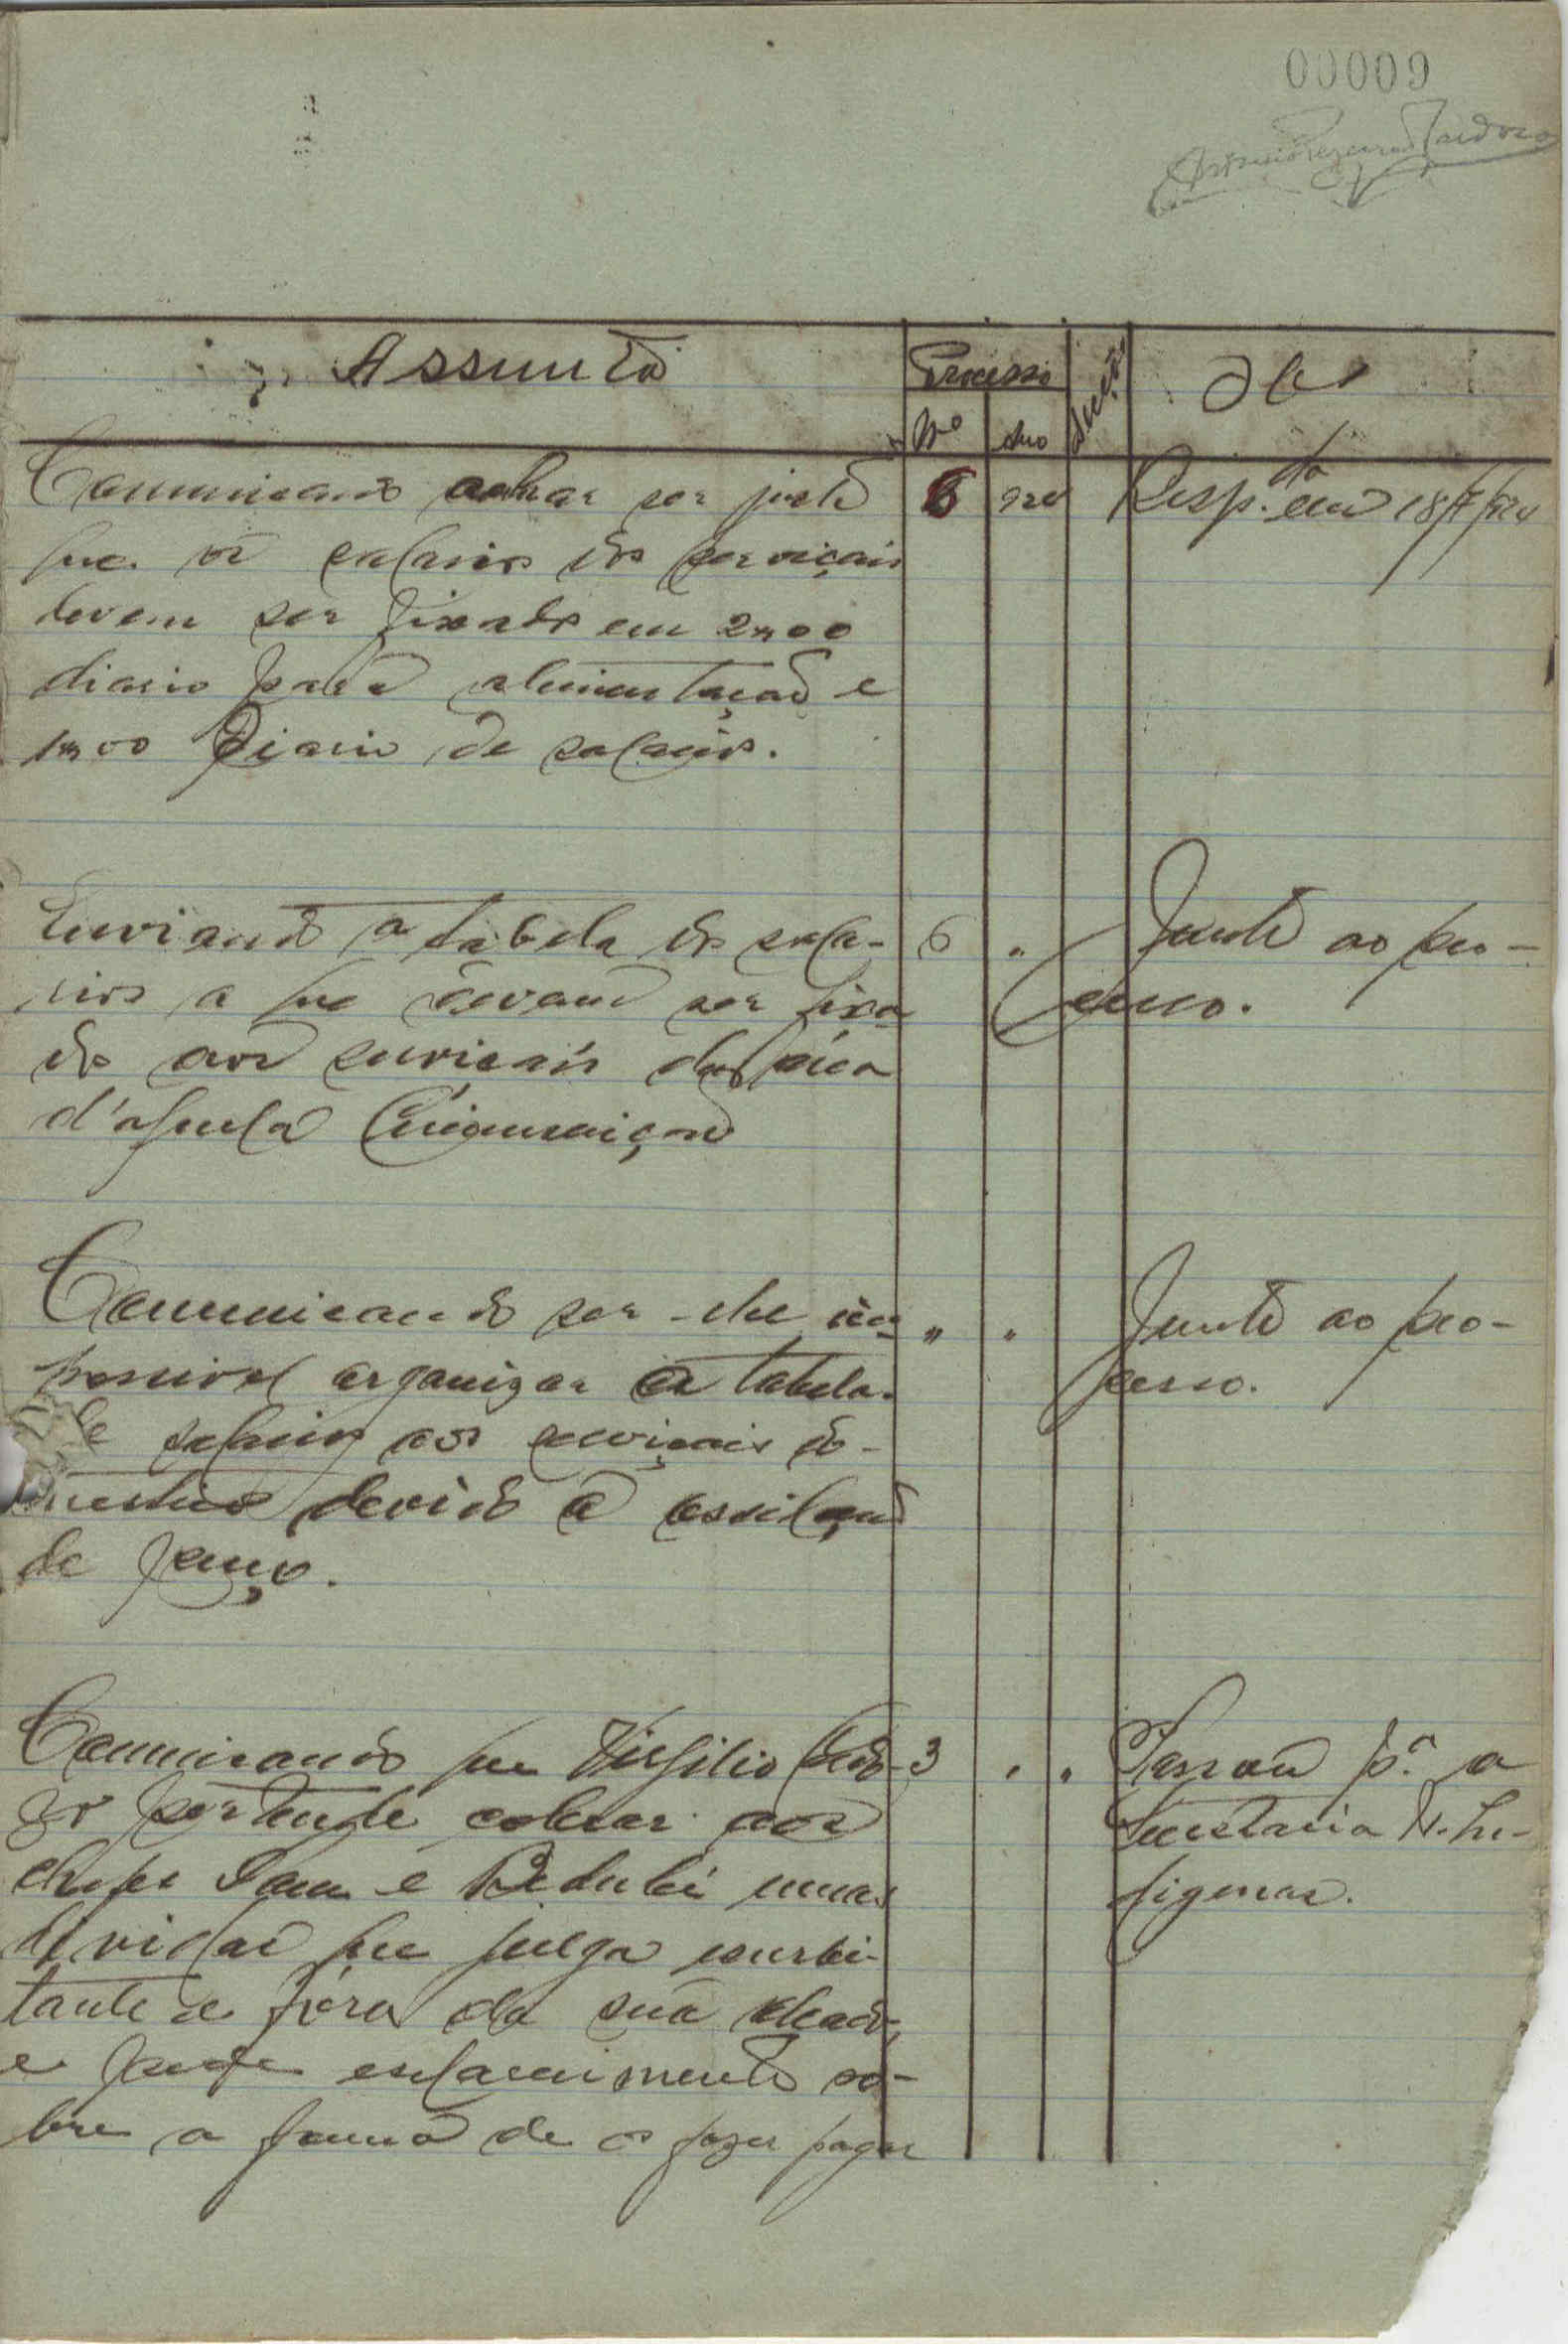 00009
Assunto
Processo
Nº
Ano
Obs
Comunicando achar ser justo
que os salarios dos serviçais
devem ser fixados em 2$00
diario para alimentação e
1$00 diario de salarios.
6 924
Resp.do em 18/7/924
Enviando a tabela dos sala-
rios a que devem ser fixa-
dos aos serviçais da area
d'aquela Circunscrição
6 "
Junto ao pro-
cesso.
Comunicando ser-lhe im-
possivel organizar a tabela
de salarios aos serviçais do-
mesticos devido á oscilação
de preço.
" "
Junto ao pro-
cesso.
Comunicando que Virgilio
pretende cobrar aos
chefes e umas
dividas que julga exorbi-
tante e fóra da sua
e pede esclarecimento so-
bre a forma de os fazer pagar
3 " "
Passou p.ª a
Secretaria N. In-
digenas.